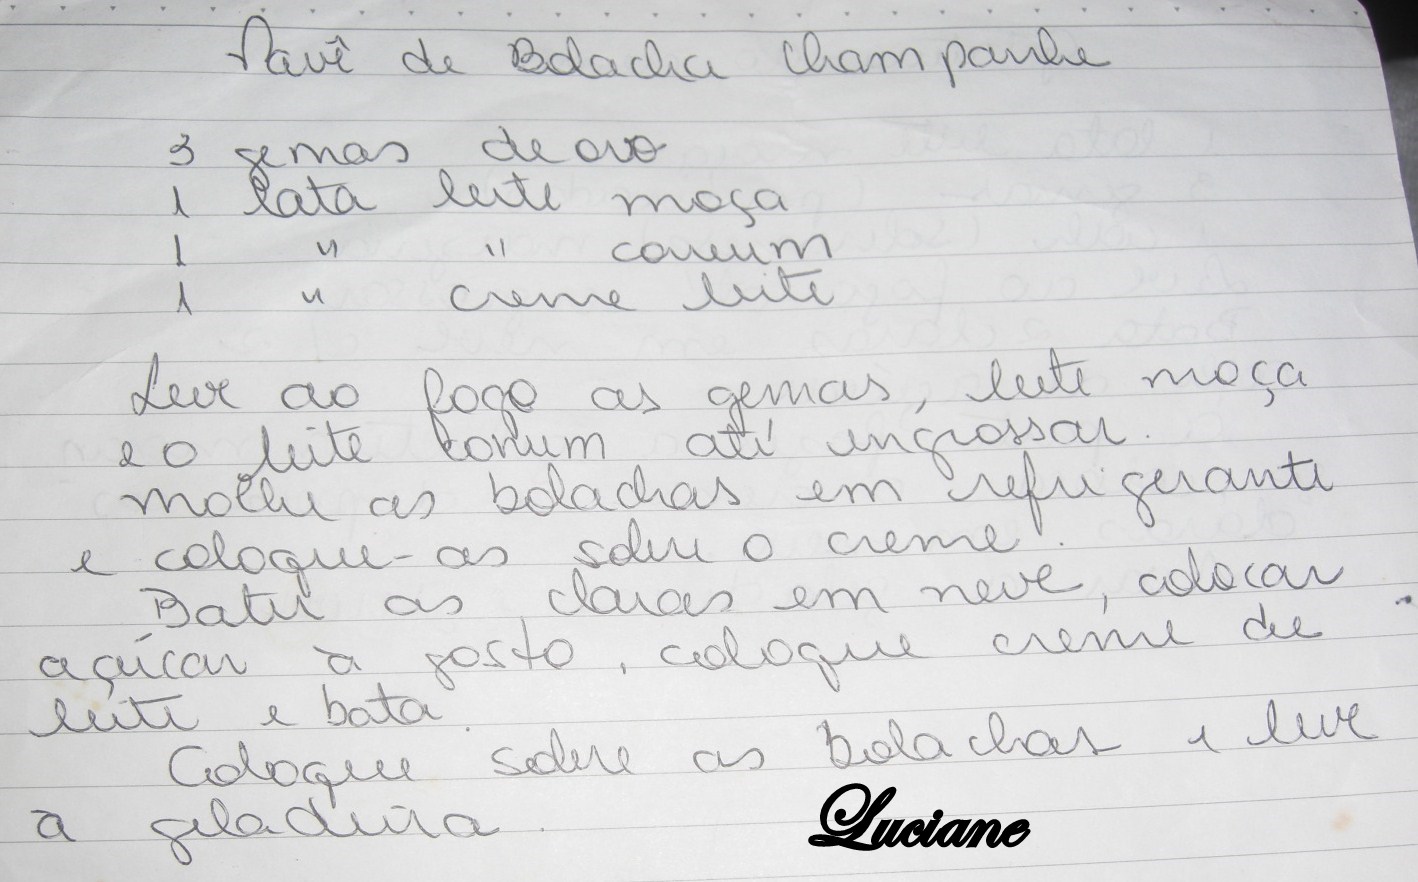 Pavê de Bolacha Champanhe
3 gemas de ovo
1 lata leite moça
1 " " comum
1 " creme leite
Leve ao fogo as gemas, leite moça
e o leite comum até ingrossar.
molhe as bolachas em refrigerante
e coloque-as sobre o creme.
Bater as claras em neve, colocar
açúcar à gosto, coloque creme de
leite e bata.
Coloque sobre as bolachas e leve
a geladeira.
Luciane